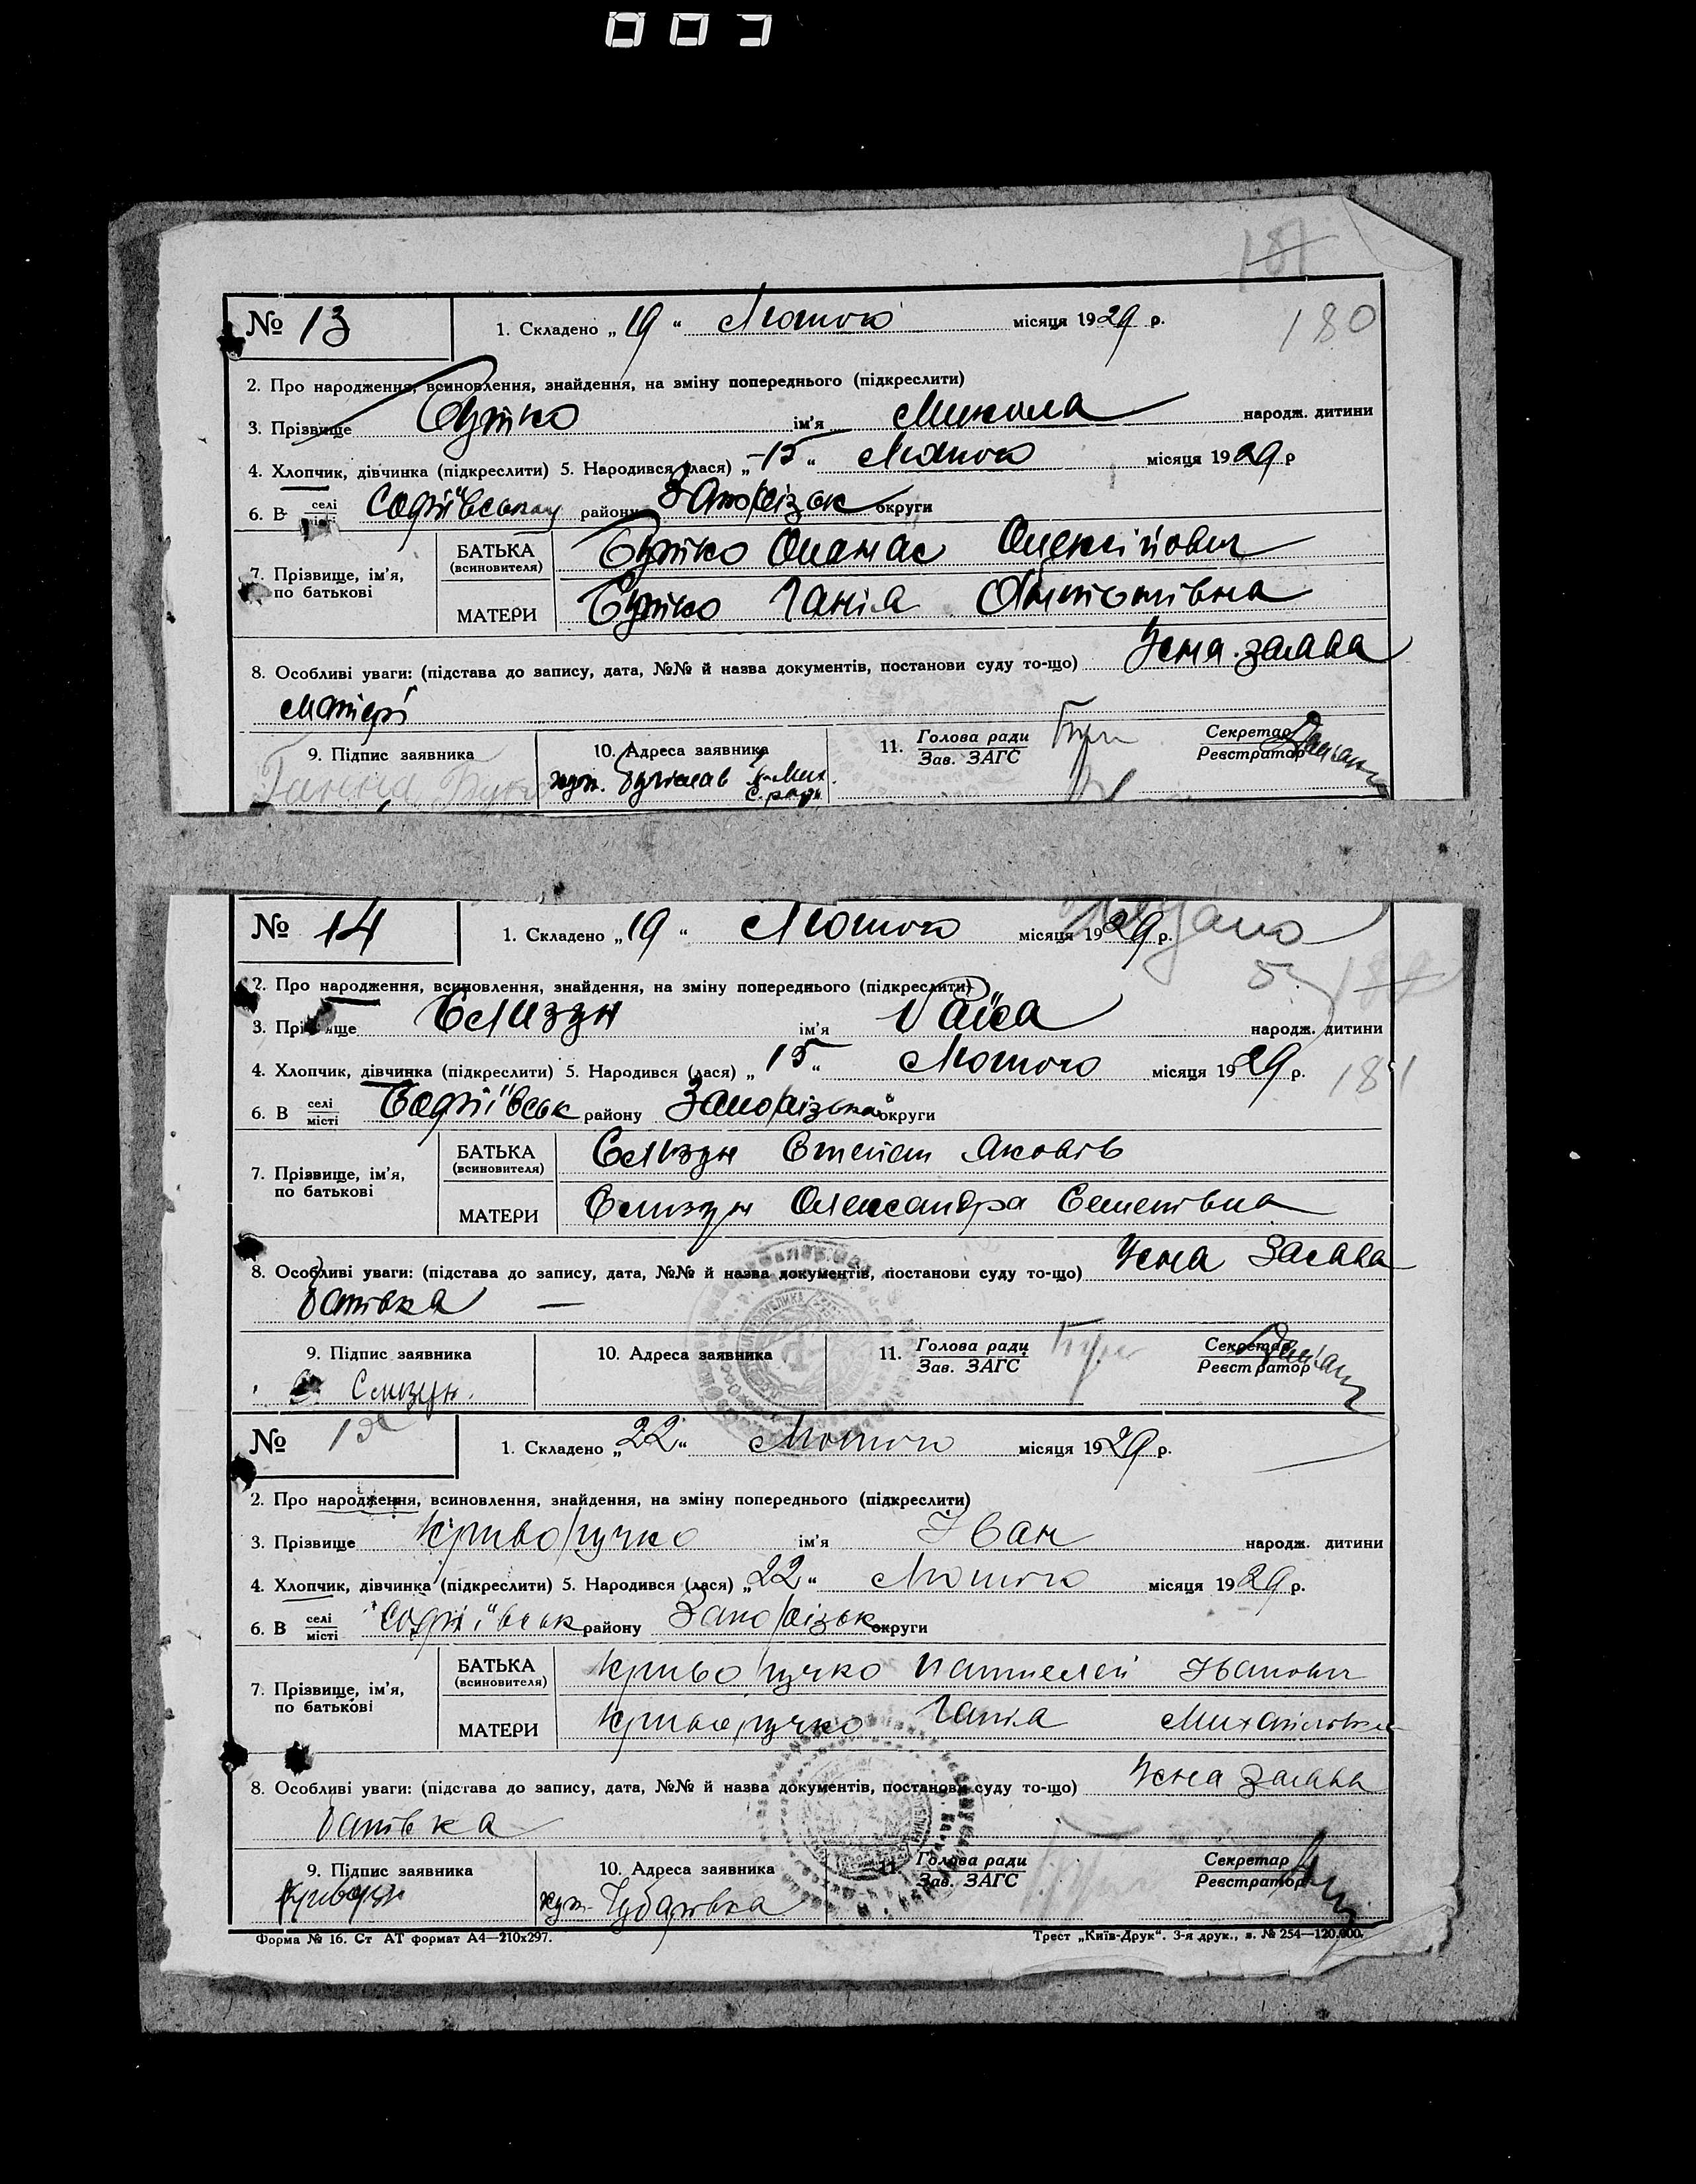 003
181
№ 13 1. Складено „19“ Лютого місяця 1929 р.
180
2. Про народження, всиновлення, знайдення, на зміну попереднього (підкреслити)
3. Прізвище Бутко ім'я Микола народж. дитини
4. Хлопчик, дівчинка (підкреслити) 5. Народився (лася) „15“ Лютого місяця 1929 р
6. В селі місті Софіївському району Запорізьк округи
7. Прізвище, ім'я, по батькові
БАТЬКА (всиновителя) Бутко Опанас Олексійович
МАТЕРИ Бутко Ганія Антонівна
8. Особливі уваги: (підстава до запису, дата, №№ й назва документів, постанови суду то-що) Усна заява
матері
9. Підпис заявника 10. Адреса заявника 11. Голова ради Зав. ЗАГС Секретар Реєстратор
Ганна Бутко хут.
№ 14 1. Складено „19“ Лютого місяця 1929 р.
2. Про народження, всиновлення, знайдення, на зміну попереднього (підкреслити)
3. Прізвище Слизун ім'я Раїса народж. дитини
4. Хлопчик, дівчинка (підкреслити) 5. Народився (лася) „15“ Лютого місяця 1929 р.
181
6. В селі місті Софіївськ району Запорізька округи
7. Прізвище, ім'я, по батькові
БАТЬКА (всиновителя) Слизун Степан Яковів
МАТЕРИ Слизун Олександра Семенівна
8. Особливі уваги: (підстава до запису, дата, №№ й назва документів, постанови суду то-що) Усна Заява
батька —
9. Підпис заявника 10. Адреса заявника 11. Голова ради Зав. ЗАГС Секретар Реєстратор
С. Слизун.
№ 15 1. Складено „22“ Лютого місяця 1929 р.
2. Про народження, всиновлення, знайдення, на зміну попереднього (підкреслити)
3. Прізвище Криворучко ім'я Іван народж. дитини
4. Хлопчик, дівчинка (підкреслити) 5. Народився (лася) „22“ Лютого місяця 1929 р.
6. В селі місті Софіївськ району Запорізьк округи
7. Прізвище, ім'я, по батькові
БАТЬКА (всиновителя) Криворучко Пантелей Іванович
МАТЕРИ Криворучко Ганія Михайлівна
8. Особливі уваги: (підстава до запису, дата, №№ й назва документів, постанови суду то-що) Усна заява
батька
9. Підпис заявника 10. Адреса заявника 11. Голова ради Зав. ЗАГС Секретар Реєстратор
хут. Чубарівка
Форма № 16. Ст АТ формат А4—210х297. Трест „Київ-Друк“. 3-я друк., з. № 254—120.000.